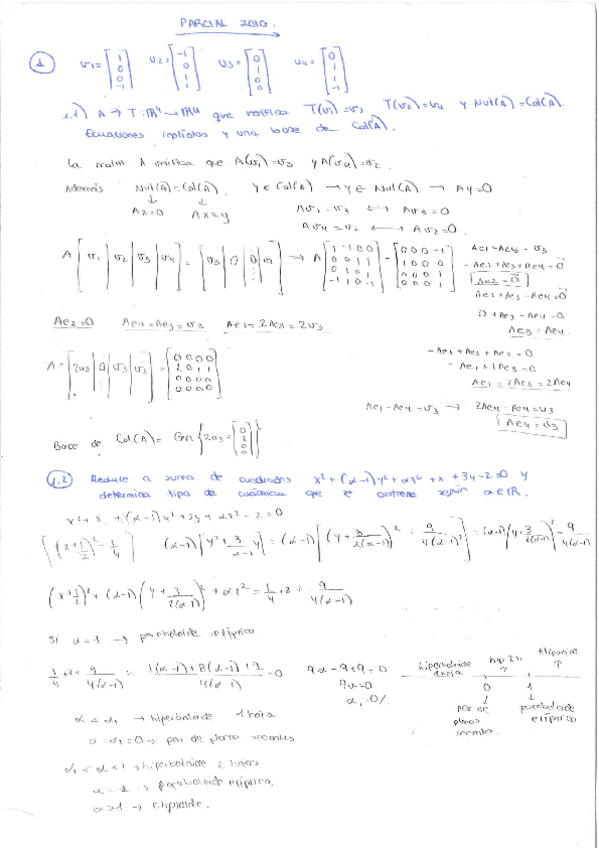 PARCIAL 2010.
1 v1=[1 0 0 -1] v2=[-1 0 1 1] v3=[0 1 0 0] v4=[0 1 1 -1]
1.1) A → T: ℝ4→ℝ4 que verifica T(v1)=v3 T(v2)=v4 y Nul(A)=Col(A).
Ecuaciones implícitas y una base de Col(A).
La matriz A verifica que A(v1)=v3 y A(v4)=v2.
Además Nul(A)=Col(A). Y∈Col(A) → Y∈Nul(A) → Ay=0
Ax=0 Ax=y
Av1=v3 ↔ Av3=0
Av4=v2 ↔ Av2=0.
A [v1|v2|v3|v4] = [v3|0|0|v2] →
Ae2=0 Ae4=Ae3=v3 Ae1=2Ae3=2v3
A = [2v3|0|v3|v3] = [0 0 0 0; 2 0 1 1; 0 0 0 0; 0 0 0 0]
-Ae1+Ae3+Ae3=0
-Ae1+2Ae3=0
Ae1=2Ae3=2Ae4
Ae1-Ae4=v3 → 2Ae4-Ae4=v3
Ae4=v3
Base de Col(A)= Gen{2v3=[0 2 0 0]}
1.2 Reduce a suma de cuadrados x²+(α-1)y²+αz²+x+3y-2=0 y
determina tipo de cuádrica que se obtiene según α∈ℝ.
x²+x+(α-1)y²+3y+αz²-2=0
[(x+1/2)²-1/4] (α-1)[y²+3/(α-1) y] = (α-1)[(y+3/(2(α-1)))²-9/(4(α-1)²)] = (α-1)(y+3/(2(α-1)))²-9/(4(α-1))
(x+1/2)²+(α-1)(y+3/(2(α-1)))²+αz²=1/4+2+9/(4(α-1))
Si α=1 → paraboloide elíptico
1/4+2+9/(4(α-1)) = (1(α-1)+8(α-1)+9)/(4(α-1))=0 9α-9+9=0
9α=0
α1=0
hiperboloide 1 hoja hip 2h Elipsoide
0 1
par de planos secantes paraboloide elíptico
α<α1 → hiperboloide 1 hoja
α=α1=0 → par de planos secantes
α1<α<1 → hiperboloide 2 hojas
α=1 → paraboloide elíptico
α>1 → elipsoide.